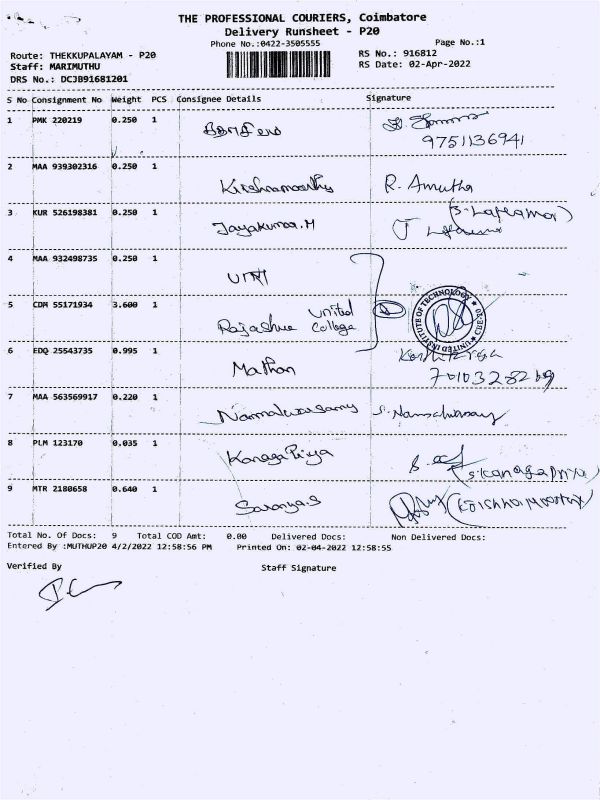 THE PROFESSIONAL COURIERS, Coimbatore
Delivery Runsheet - P20
Phone No.:0422-3505555
Page No.:1
Route: THEKKUPALAYAM - P20
RS No.: 916812
Staff: MARIMUTHU
RS Date: 02-Apr-2022
DRS No.: DCJB91681201
S No Consignment No Weight PCS Consignee Details Signature
1 PMK 220219 0.250 1
9751136941
2 MAA 939302316 0.250 1
Krishnamoorthy R. Amutha
3 KUR 526198381 0.250 1
Jayakumar.M
4 MAA 932498735 0.250 1
5 CDM 55171934 3.600 1 United
Rajashree College
UNITED INSTITUTE OF TECHNOLOGY
6 EDQ 25543735 0.995 1
Mathan
7 MAA 563569917 0.220 1
8 PLM 123170 0.035 1
Kanaga Priya (S.Kanagapriya)
9 MTR 2180658 0.640 1
Saranya.S (Krishnamoorthy)
Total No. Of Docs: 9 Total COD Amt: 0.00 Delivered Docs: Non Delivered Docs:
Entered By :MUTHUP20 4/2/2022 12:58:56 PM Printed On: 02-04-2022 12:58:55
Verified By Staff Signature